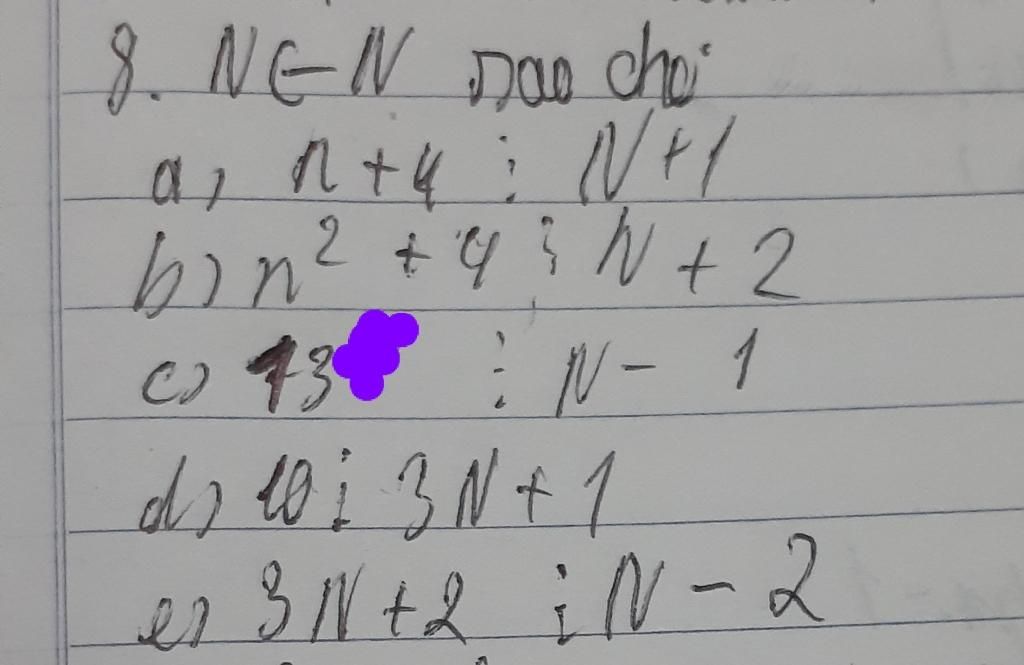 8. N ∈ N sao cho
a, n + 4 ⋮ N + 1
b) n² + 4 ⋮ N + 2
c) 13 ⋮ N - 1
d) 10 ⋮ 3N + 1
e) 3N + 2 ⋮ N - 2